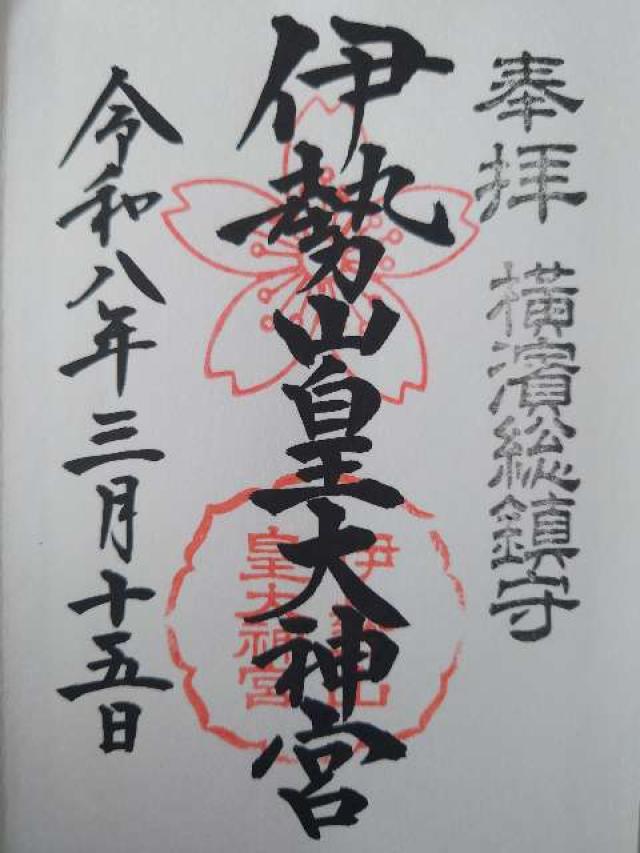 奉拝 横濱総鎮守
伊勢山皇大神宮
伊勢山
皇大神宮
令和八年三月十五日